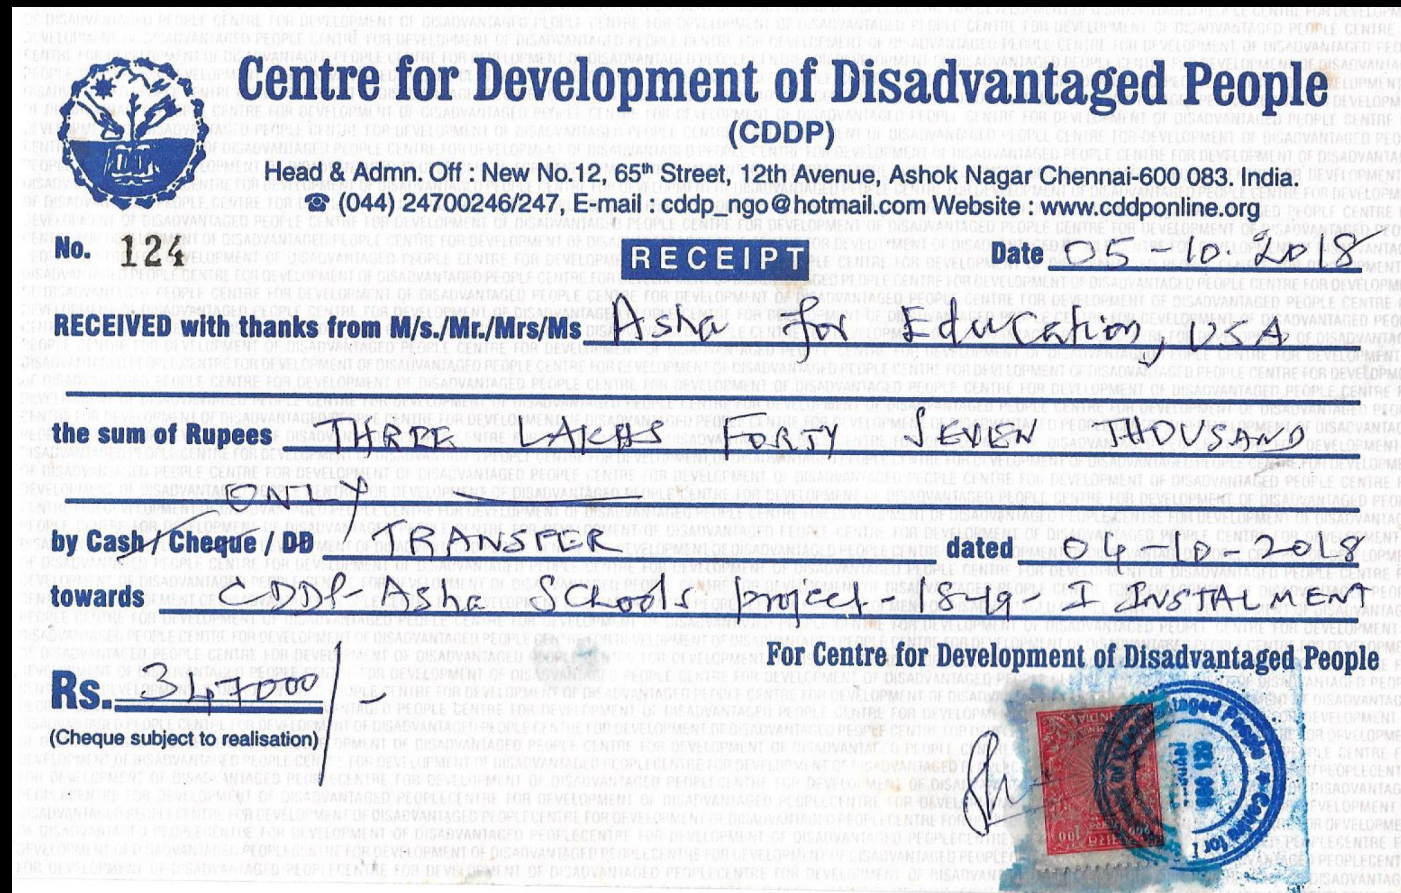 Centre for Development of Disadvantaged People
(CDDP)
Head & Admn. Off : New No.12, 65th Street, 12th Avenue, Ashok Nagar Chennai-600 083, India.
☎ (044) 24700246/247, E-mail : cddp_ngo@hotmail.com Website : www.cddponline.org
No. 124 RECEIPT Date 05.10.2018
RECEIVED with thanks from M/s./Mr./Mrs/Ms Asha for Education, USA
the sum of Rupees THREE LAKHS FORTY SEVEN THOUSAND
ONLY
by Cash / Cheque / DD TRANSFER dated 04-10-2018
towards CDDP-Asha Schools project 18-19 I INSTALMENT
For Centre for Development of Disadvantaged People
Rs. 347000/-
(Cheque subject to realisation)